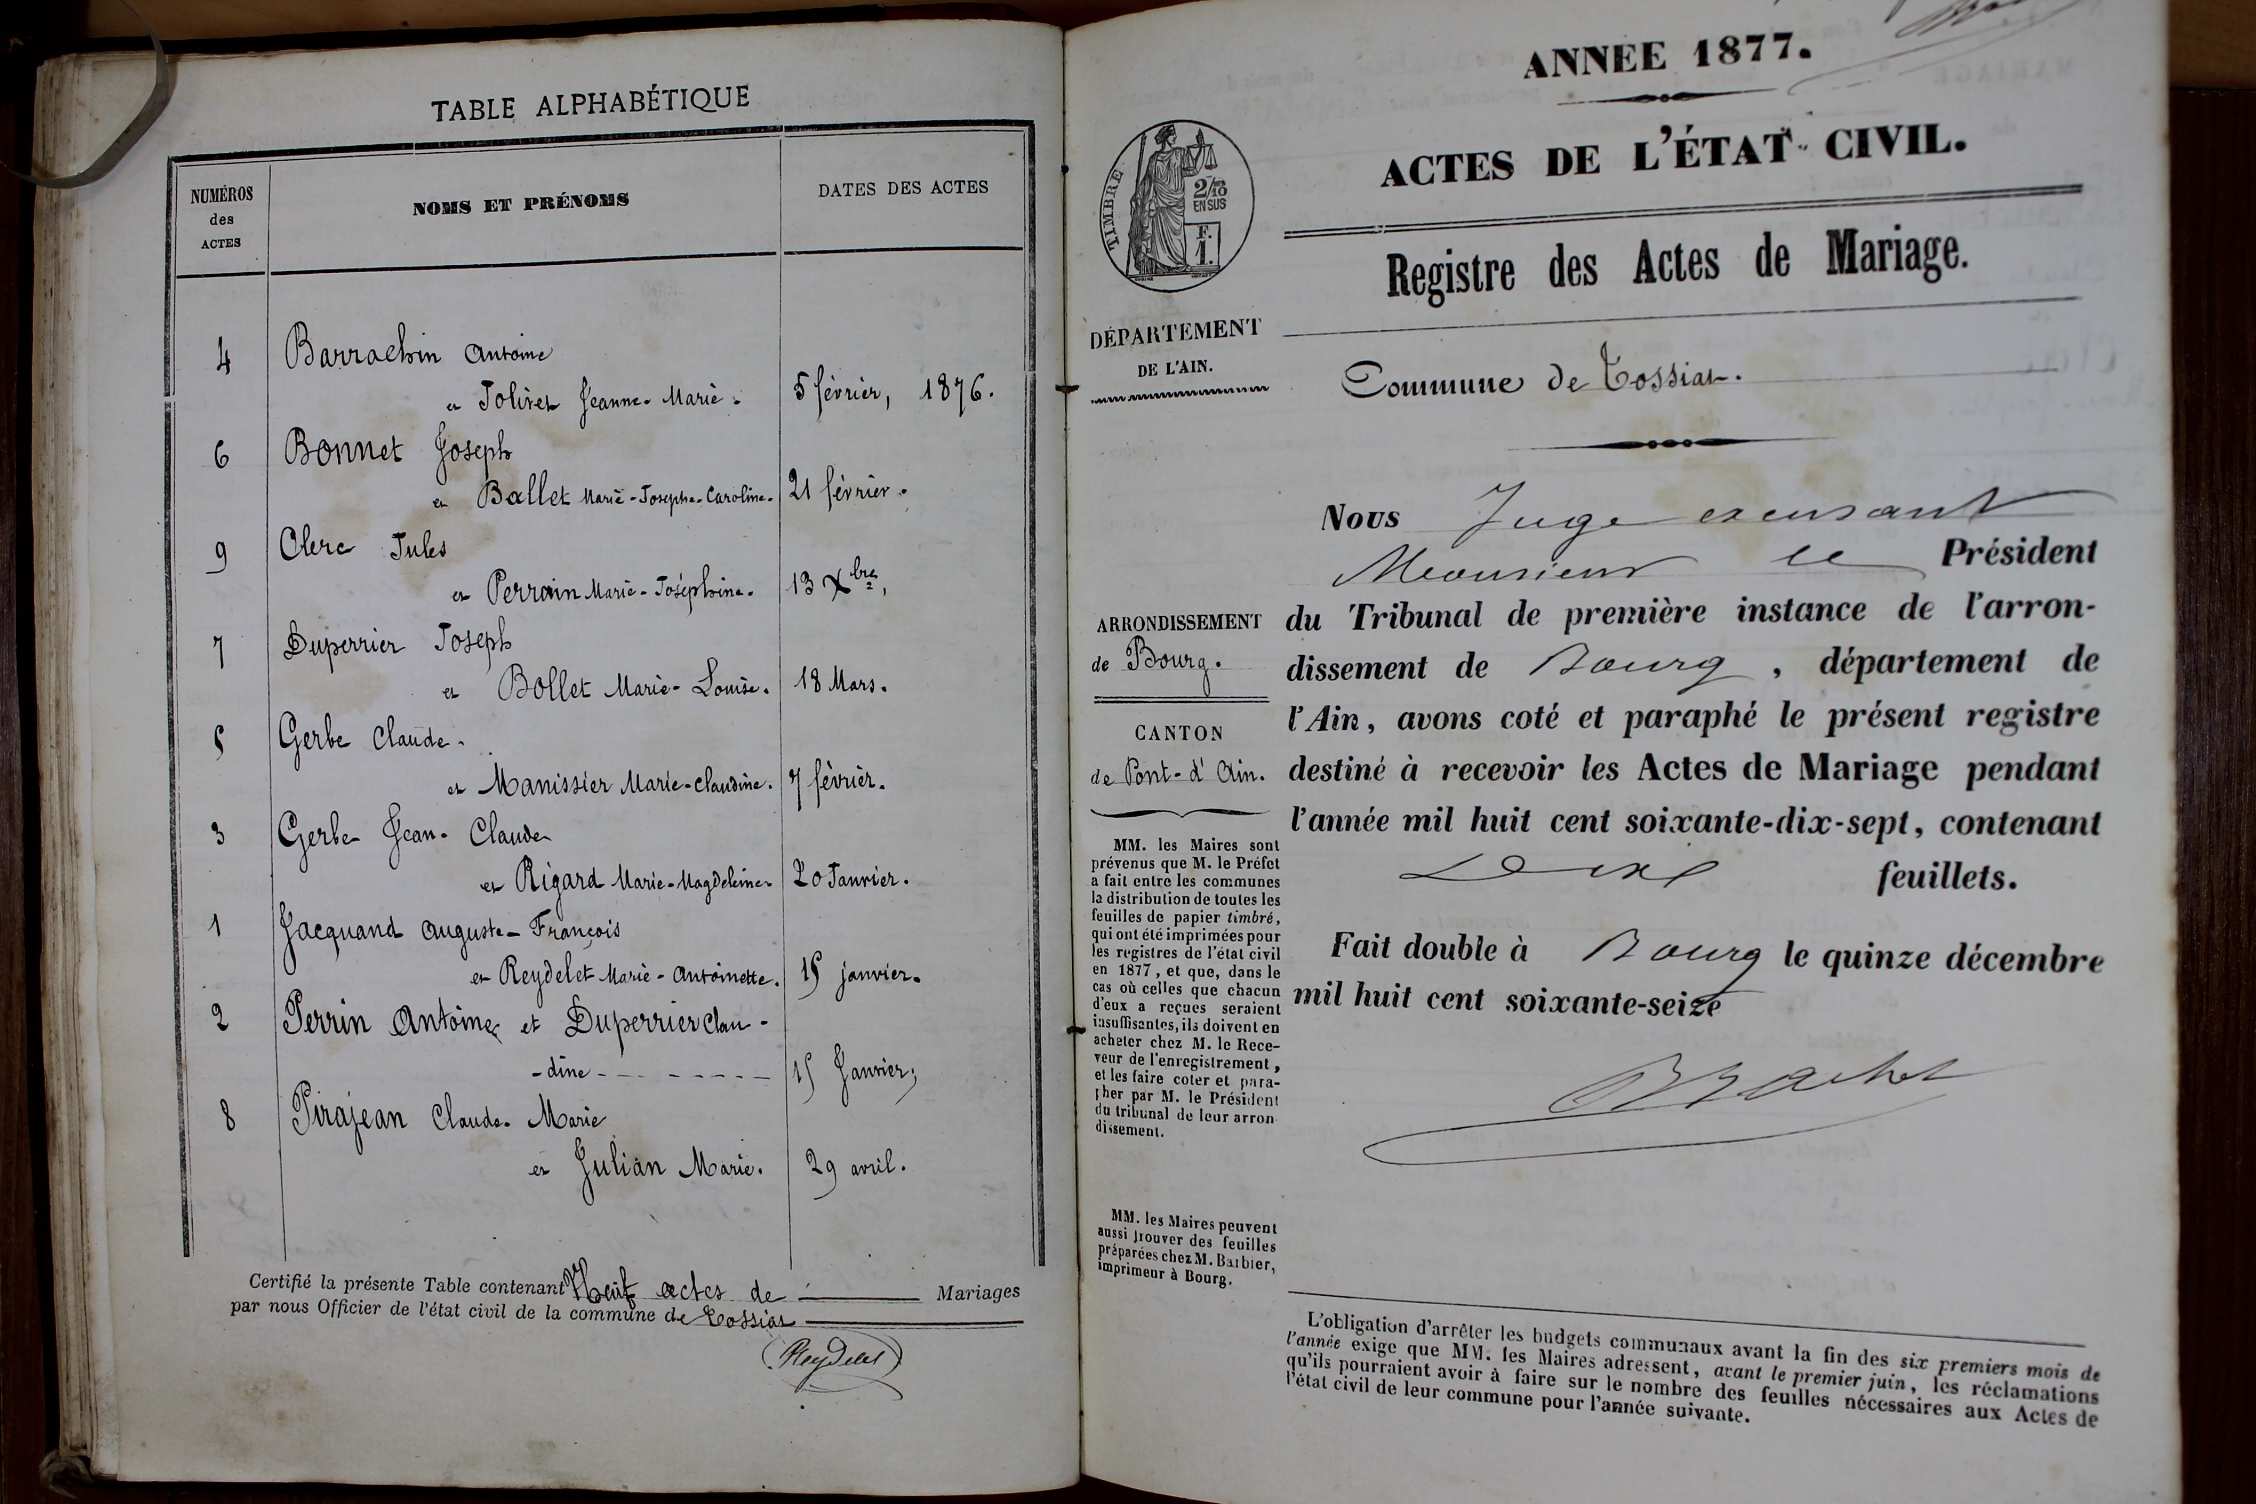 TABLE ALPHABÉTIQUE
NUMÉROS
des
ACTES
NOMS ET PRÉNOMS
DATES DES ACTES
4 Barrachin Antoine
et Jolivet Jeanne-Marie. 5 février, 1876.
6 Bonnet Joseph
et Ballet Marie-Josephe-Caroline. 21 février.
9 Clerc Jules
et Perrain Marie-Joséphine. 13 Xbre,
7 Duperrier Joseph
et Bollet Marie-Louise. 18 Mars.
5 Gerbe Claude.
et Manissier Marie-Claudine. 7 février.
3 Gerbe Jean-Claude
et Rigard Marie-Magdeleine 20 Janvier.
1 Jacquand Auguste-François
et Reydelet Marie-Antoinette. 15 janvier.
2 Perrin Antoine et Duperrier Clau-
-dine 15 Janvier,
8 Pirajean Claude-Marie
et Julian Marie. 29 avril.
Certifié la présente Table contenant Neuf actes de Mariages
par nous Officier de l'état civil de la commune de Tossiat
Reydelet
ANNEE 1877.
ACTES DE L'ÉTAT CIVIL.
Registre des Actes de Mariage.
TIMBRE
2/10
EN SUS
F.
1.
DÉPARTEMENT
DE L'AIN.
Commune de Tossiat.
ARRONDISSEMENT
de Bourg.
CANTON
de Pont-d'Ain.
MM. les Maires sont
prévenus que M. le Préfet
a fait entre les communes
la distribution de toutes les
feuilles de papier timbré,
qui ont été imprimées pour
les registres de l'état civil
en 1877, et que, dans le
cas où celles que chacun
d'eux a reçues seraient
insuffisantes, ils doivent en
acheter chez M. le Rece-
veur de l'enregistrement,
et les faire coter et para-
pher par M. le Président
du tribunal de leur arron-
dissement.
MM. les Maires peuvent
aussi trouver des feuilles
préparées chez M. Barbier,
imprimeur à Bourg.
Nous Juge excusant
Monsieur le Président
du Tribunal de première instance de l'arron-
dissement de Bourg, département de
l'Ain, avons coté et paraphé le présent registre
destiné à recevoir les Actes de Mariage pendant
l'année mil huit cent soixante-dix-sept, contenant
feuillets.
Fait double à Bourg le quinze décembre
mil huit cent soixante-seize
L'obligation d'arrêter les budgets communaux avant la fin des six premiers mois de
l'année exige que MM. les Maires adressent, avant le premier juin, les réclamations
qu'ils pourraient avoir à faire sur le nombre des feuilles nécessaires aux Actes de
l'état civil de leur commune pour l'année suivante.